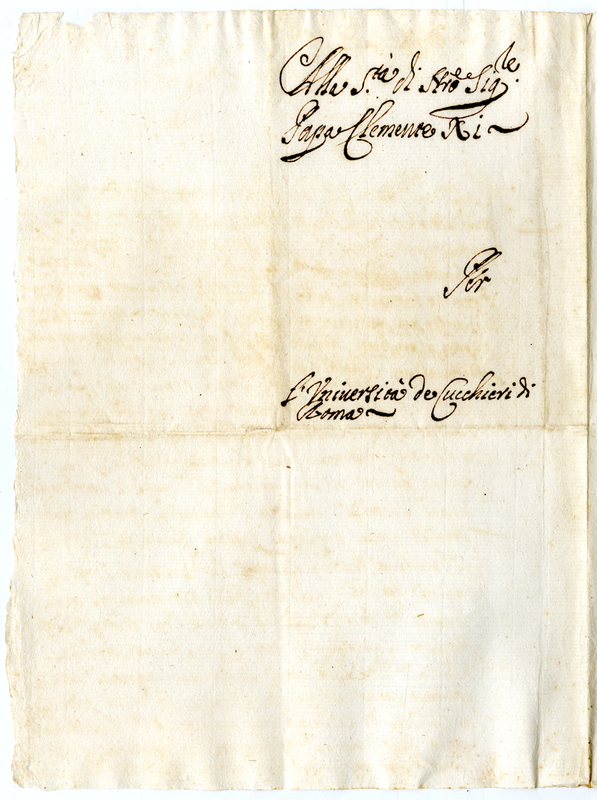 Alla S.tà di Nrõ Sig.le
Papa Clemente XI
Per
L'Università de Cucchieri di
Roma